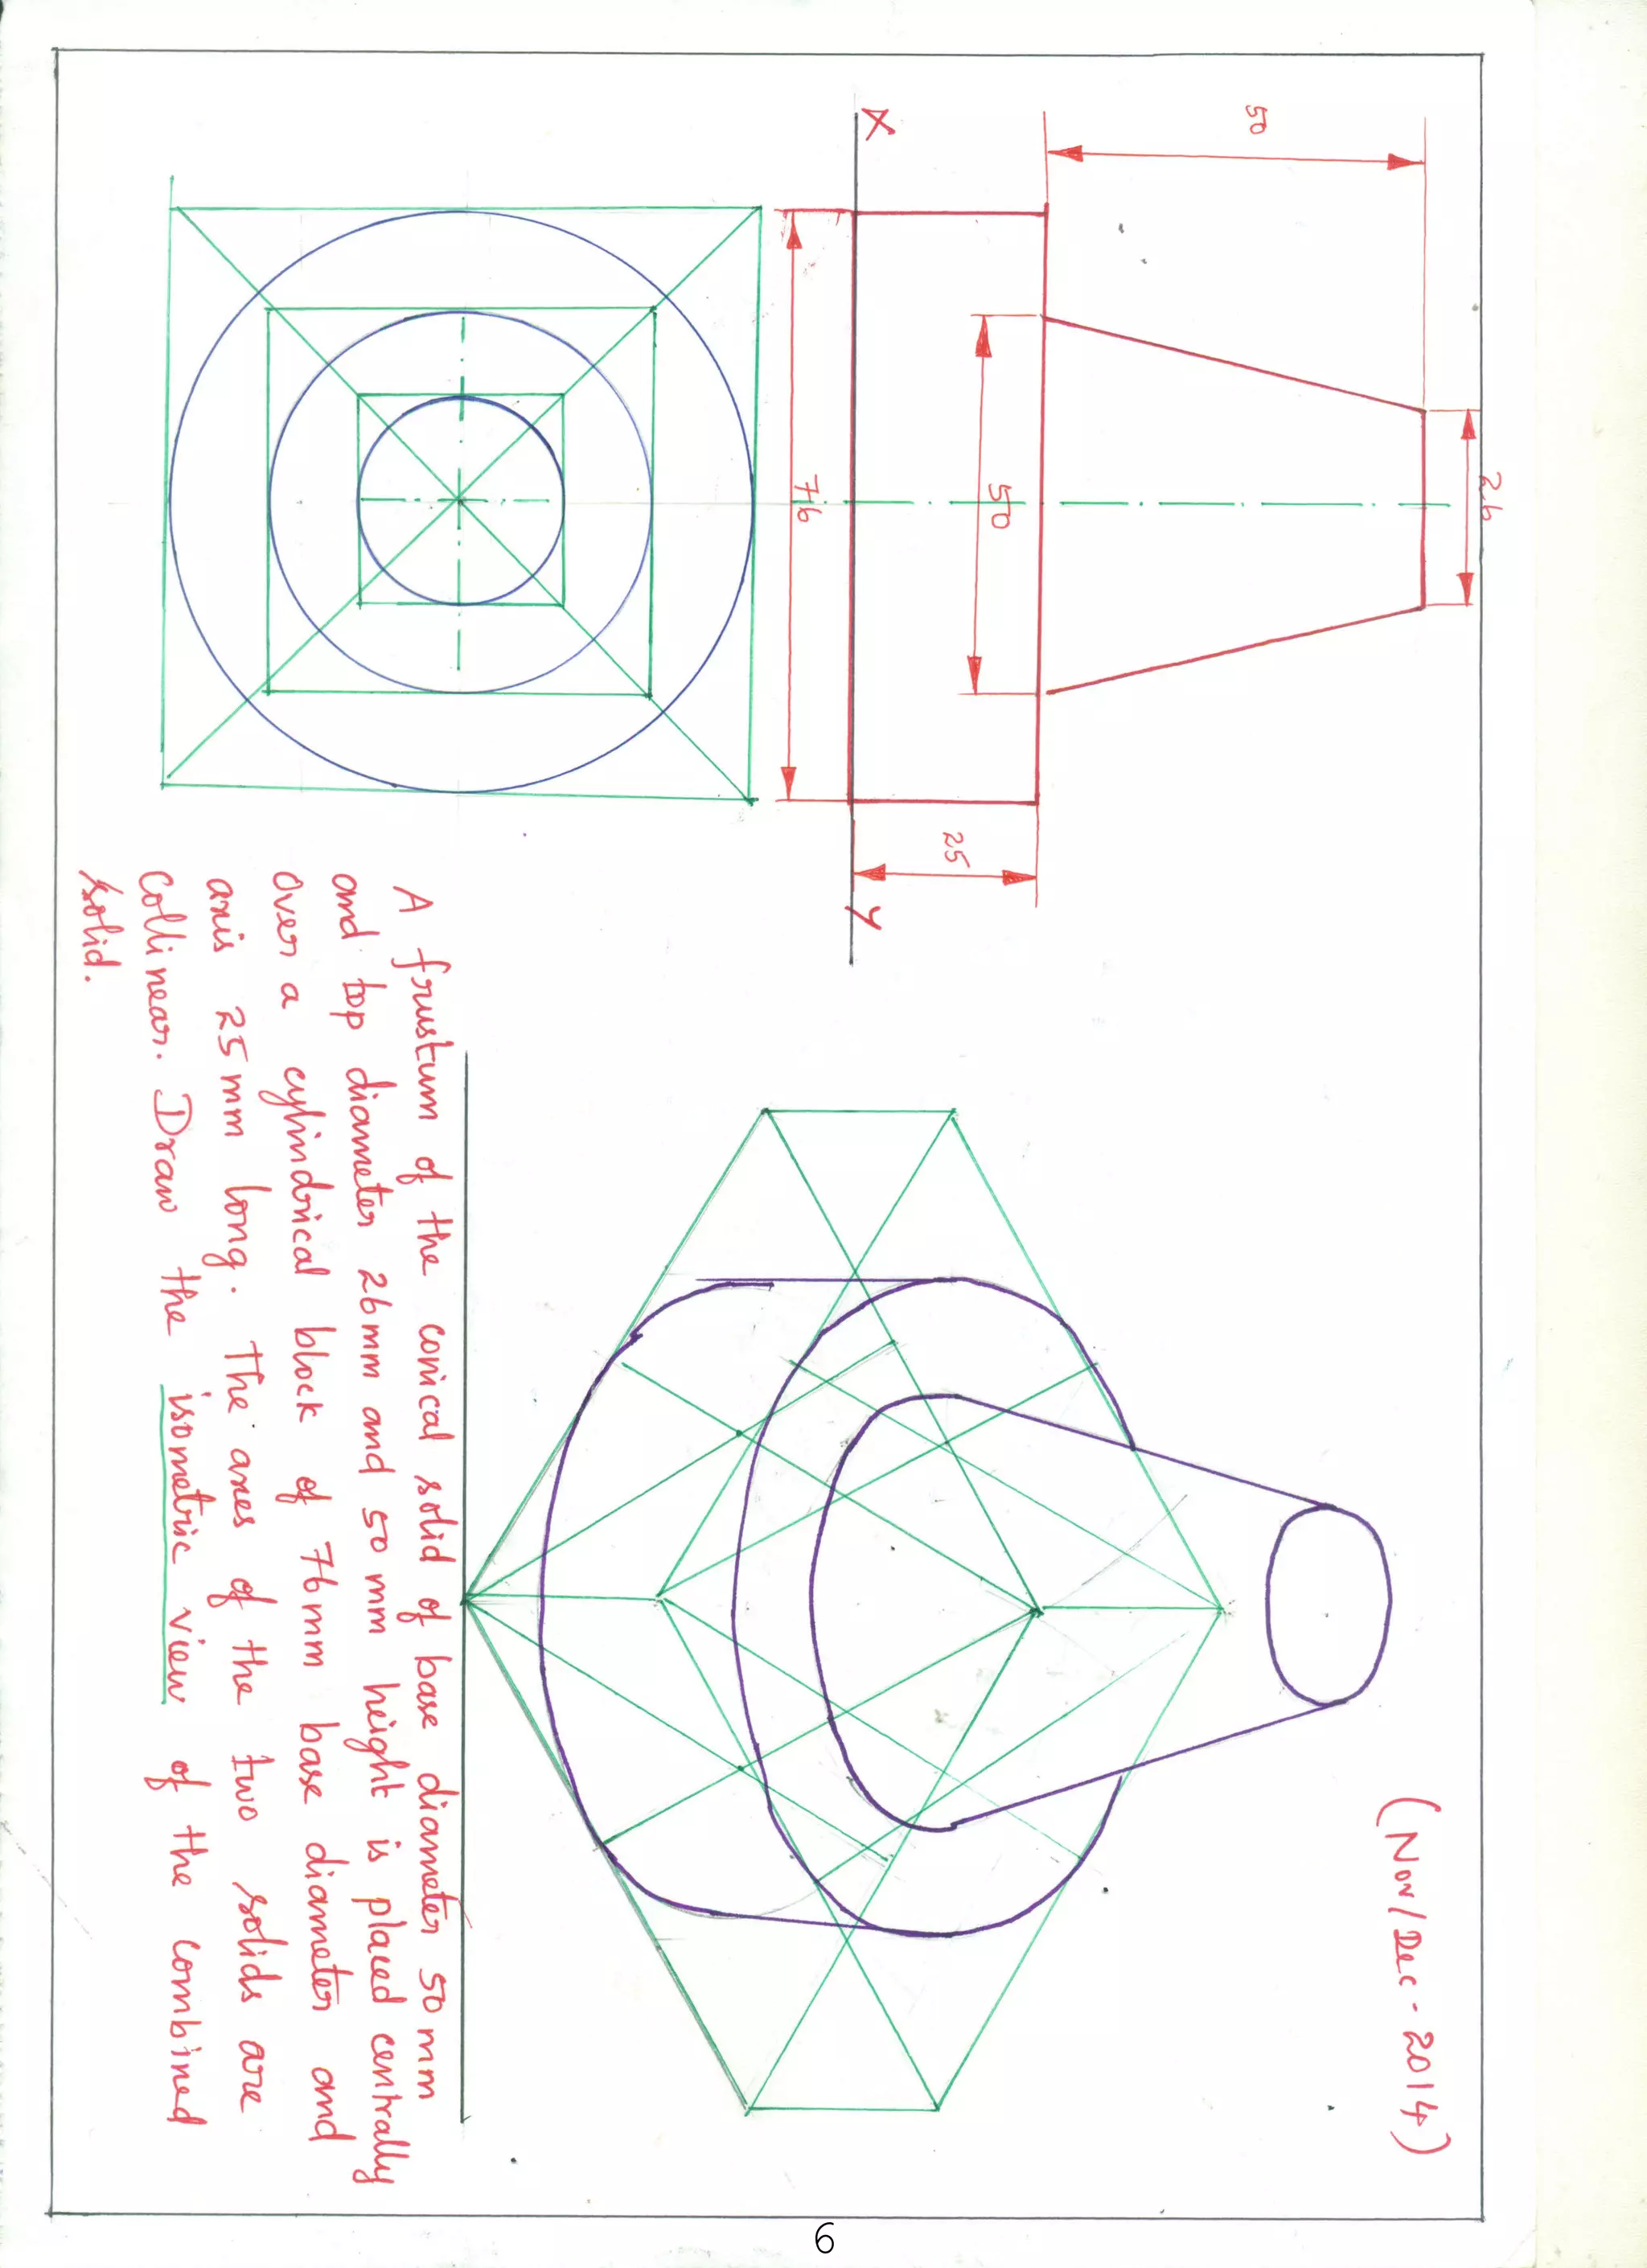 (Nov/Dec - 2014)
26
50
50
25
X
Y
76
A frustum of the conical solid of base diameter 50 mm
and top diameter 26 mm and 50 mm height is placed centrally
over a cylindrical block of 76 mm base diameter and
axis 25 mm long. The axes of the two solids are
Collinear. Draw the isometric view of the combined
solid.
6